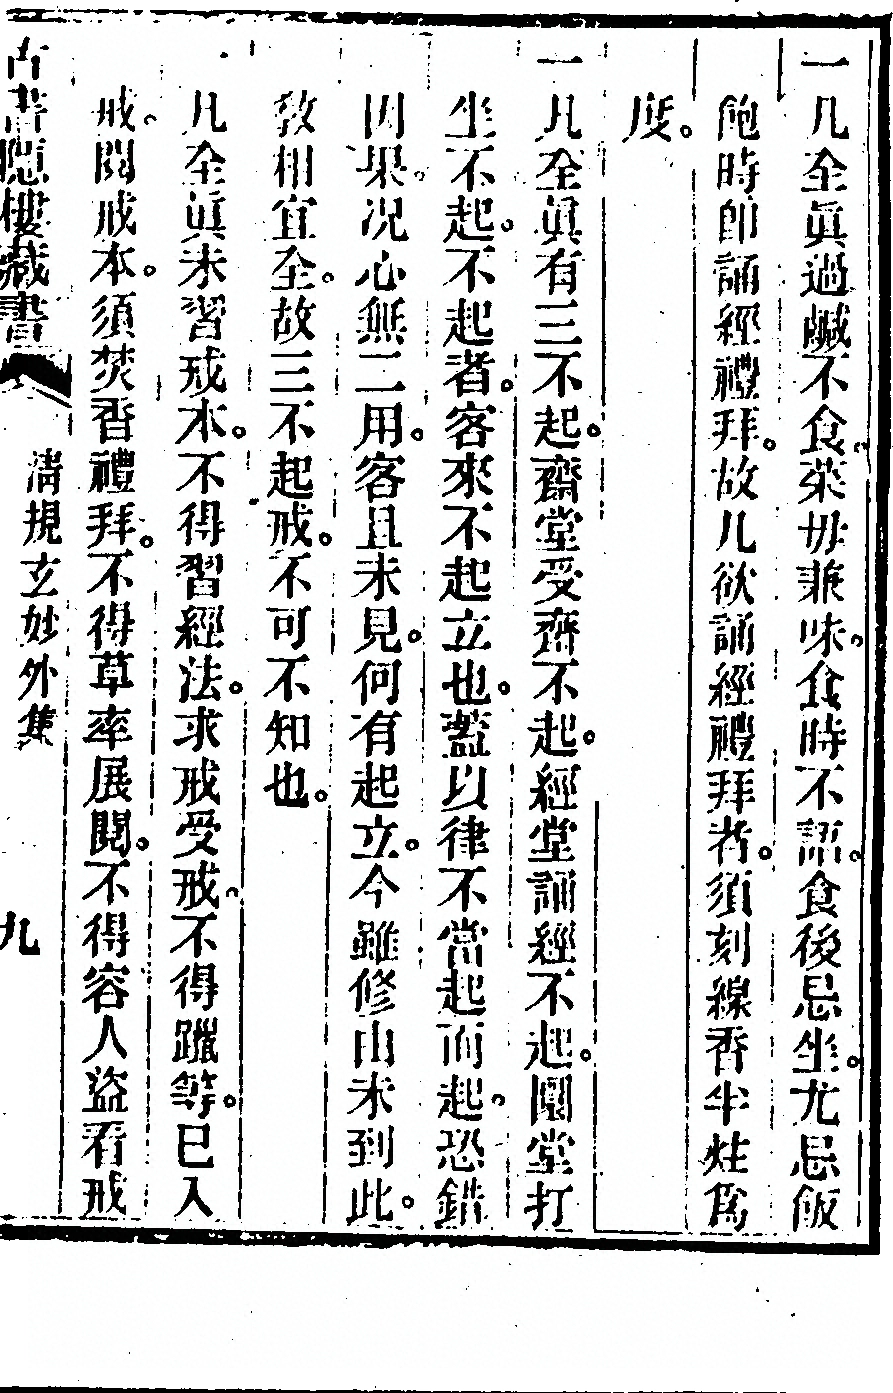 一凡全眞過鹹不食。菜毋兼味。食時不語。食後忌坐。尤忌飯
飽時卽誦經禮拜。故凡欲誦經禮拜者。須刻線香半炷爲
度。
一凡全眞有三不起。齋堂受齋不起。經堂誦經不起。圜堂打
坐不起。不起者。客來不起立也。蓋以律不當起而起。恐錯
因果。况心無二用。客且未見。何有起立。今雖修由未到此。
敎相宜全。故三不起戒。不可不知也。
凡全眞未習戒本。不得習經法。求戒受戒。不得躐等。已入
戒。閱戒本。須焚香禮拜。不得草率展閱。不得容人盜看戒
古書隱樓藏書
淸規玄妙外集
九